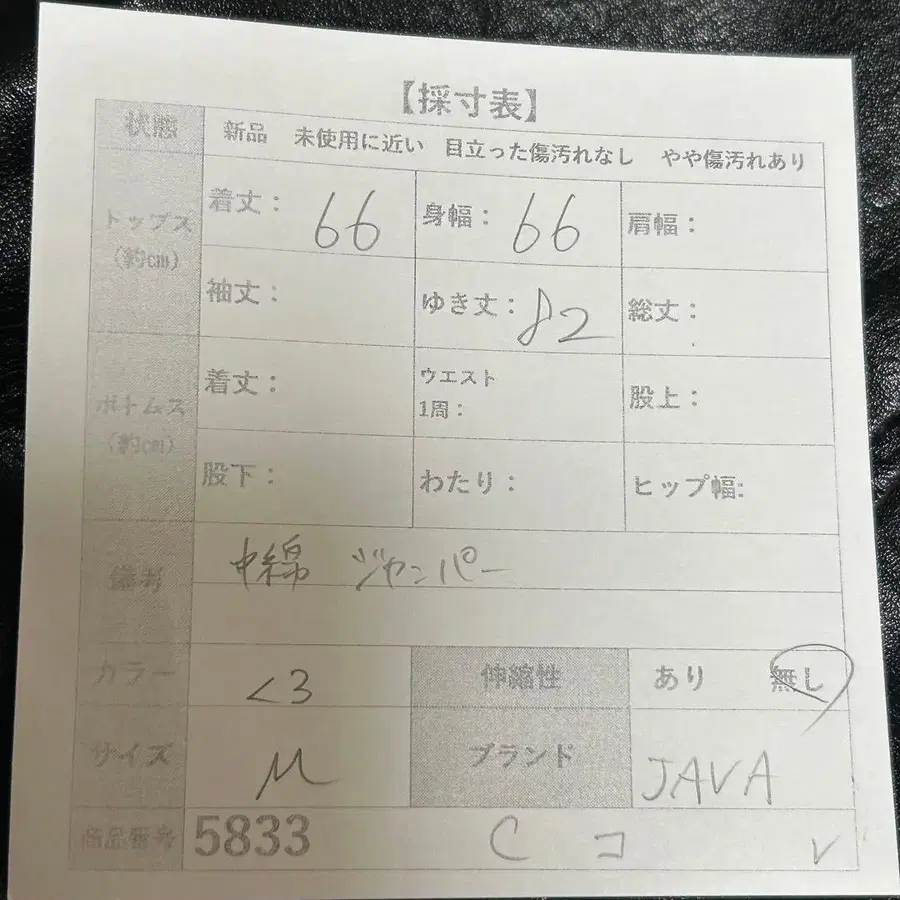 【採寸表】
状態 新品 未使用に近い 目立った傷汚れなし やや傷汚れあり
トップス (約cm)
着丈： 66 身幅： 66 肩幅：
袖丈： ゆき丈： 82 総丈：
ボトムス (約cm)
着丈： ウエスト 1周： 股上：
股下： わたり： ヒップ幅:
備考 中綿 ジャンパー
カラー くろ 伸縮性 あり 無し
サイズ M ブランド JAVA
商品番号 5833 C コ v